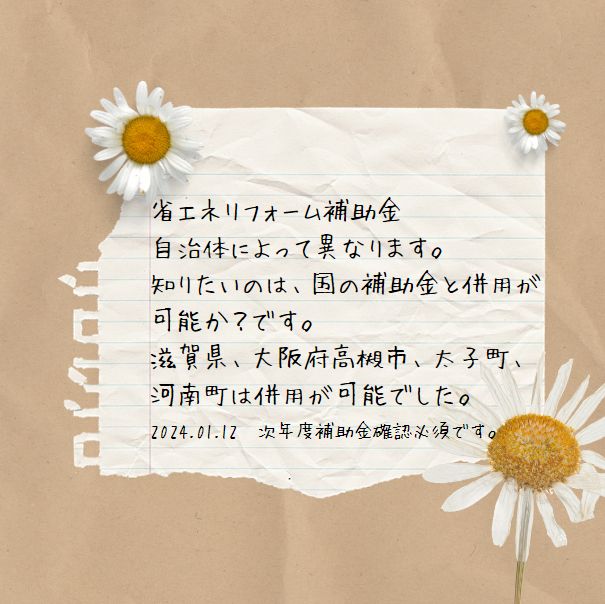 省エネリフォーム補助金
自治体によって異なります。
知りたいのは、国の補助金と併用が
可能か？です。
滋賀県、大阪府高槻市、太子町、
河南町は併用が可能でした。
2024.01.12　次年度補助金確認必須です。